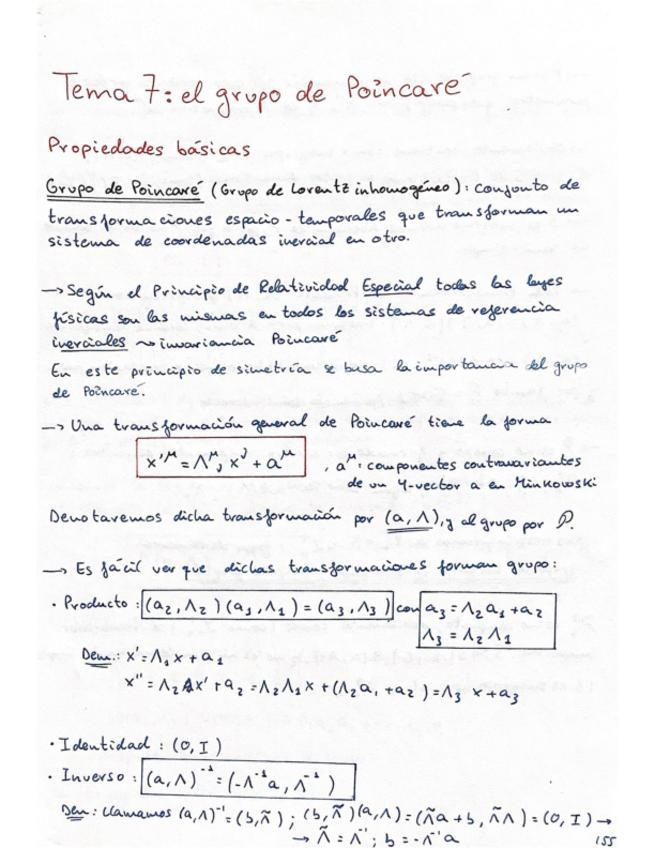 Tema 7: el grupo de Poincaré
Propiedades básicas
Grupo de Poincaré (Grupo de Lorentz inhomogéneo): conjunto de
transformaciones espacio-temporales que transforman un
sistema de coordenadas inercial en otro.
→ Según el Principio de Relatividad Especial todas las leyes
físicas son las mismas en todos los sistemas de referencia
inerciales ~> invariancia Poincaré
En este principio de simetría se basa la importancia del grupo
de Poincaré.
→ Una transformación general de Poincaré tiene la forma
x'^μ = Λ^μ_ν x^ν + a^μ , a^μ: componentes contravariantes
de un 4-vector a en Minkowski
Denotaremos dicha transformación por (a, Λ), y al grupo por P.
→ Es fácil ver que dichas transformaciones forman grupo:
· Producto: (a₂, Λ₂)(a₁, Λ₁) = (a₃, Λ₃) con a₃ = Λ₂a₁ + a₂
Λ₃ = Λ₂Λ₁
Dem.: x' = Λ₁x + a₁
x'' = Λ₂x' + a₂ = Λ₂Λ₁x + (Λ₂a₁ + a₂) = Λ₃x + a₃
· Identidad: (0, I)
· Inverso: (a, Λ)⁻¹ = (-Λ⁻¹a, Λ⁻¹)
Dem: Llamamos (a, Λ)⁻¹ = (b, Λ̃); (b, Λ̃)(a, Λ) = (Λ̃a + b, Λ̃Λ) = (0, I) →
→ Λ̃ = Λ⁻¹; b = -Λ⁻¹a
155